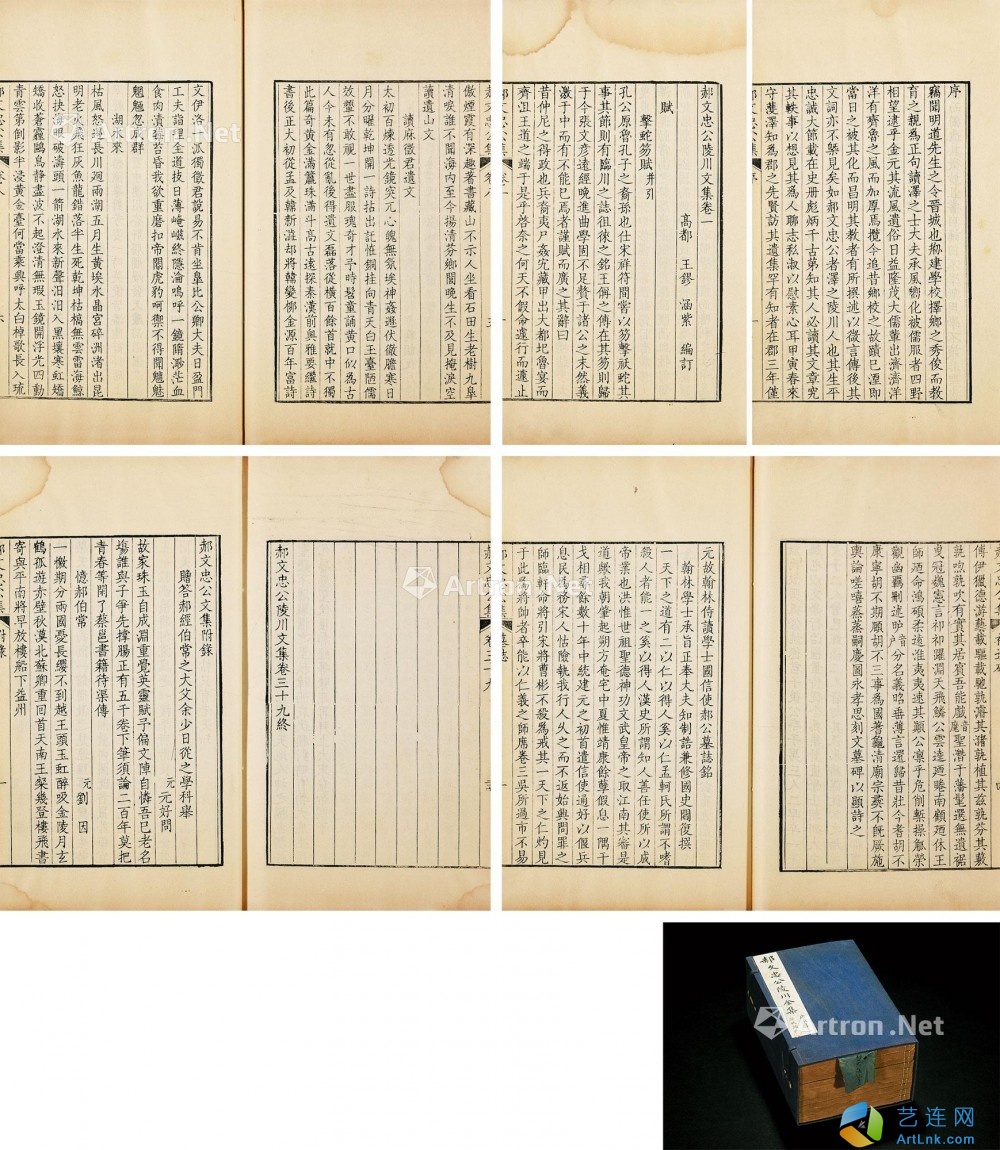 序
竊聞明道先生之令晉城也鄉建學校擇鄉之秀俊而教
育之親為正句讀澤之士大夫承風嚮化被儒服者四野
相望逮乎金元其流風遺俗日益隆茂大儒輩出濟濟洋
洋有齊魯之風而加厚焉攬今追昔鄉校之故蹟已湮即
當日之被其化而昌明其教者有所撰述以微言傳後其
文詞亦不槩見矣如郝文忠公者澤之陵川人也其生平
忠誠大節載在史冊彪炳千古第知其人必讀其文章究
其軼事以想見其為人聊志私淑以慰素心耳甲寅春來
守濩澤知為郡之先賢訪其遺集罕有知者在郡三年僅
郝文忠公陵川文集卷一
高都 王鏐 涵紫 編訂
賦
擊蛇笏賦并引
孔公原魯孔子之裔孫也仕宋祥符間嘗以笏擊祅蛇其
事其節則有臨川之誌徂徠之銘王偁之傳在其笏則歸
于今張文彥遠經晚進曲學固不足贅于諸公之末然義
激于中而有不能已焉者謹賦而廣之其辭曰
昔仲尼之得政也兵裔夷尸姦宄藏甲出大都圮魯宴而
齊沮王道之端于是乎啓奈之何天不假命還行而遽止
傲煙霞有深趣著書藏山不示人坐看石田生老樹九皐
清唳誰不聞海內至今揚清芬鄉關晚生不及見掩淚空
讀遺山文
讀麻徵君遺文
太初百煉逸光鏡突兀心魄無氛埃神姦遁伏僬膽寒日
月分曜乾坤開一詩拈出託惟銅挂向青天白玉臺陋儒
故璽不敢視一世盡服瑰奇才予時髫童誦黃口似為古
人今未有忽從亂後得遺文磊落從橫百餘首就中不獨
此篇奇黃金滿籯珠滿斗高古遠探秦漢前奧雅要繼詩
書後正大初從孟及韓斬泚却將韓變柳金源百年富詩
文伊洛一派獨徵君說易不肯坐皐比公卿大夫日盈門
工夫詣理全道技日薄崦嵫終隱淪嗚呼一鏡隋渺茫血
食肉潰罹苔昏我欲重磨扣帝閽虎豹呵禦不得開魑魅
魍魎忽成群
湖水來
枯風怒捲長川迴兩湖五月生黃埃水晶宮碎淵渚出昆
明老火飛狂灰魚龍錯落半生死乾坤枯槁無雲雷海鯨
怒抉海眼破濤頭一箭湖水來新聲汨汨入黑壤寒虹矯
矯收蒼靄鷗鳥靜盡波不起澄清無瑕玉鏡開浮光四動
青雲第倒影半浸黃金臺何當乘興呼太白棹歌長入琉
傳伊獵德游藝載驅載馳孰濬其潛孰植其茲孰芬其蓺
觀幽羈刪述
康寧胡不期願胡不三事為國蓍龜清廟宗彝不旣厥施
輿論嗟嘻蒸蒸嗣慶圖永孝思刻文墓碑以顯詩之
元故翰林侍讀學士國信使郝公墓誌銘
翰林學士承旨正奉大夫知制誥兼修國史閻復撰
一天下之道有二以仁以得人奚以仁孟軻氏所謂不嗜
殺人者能一之奚以得人漢史所謂知人善任使所以成
帝業也洪惟世祖聖德神功文武皇帝之取江南其審是
道歟我朝肇起朔方奄宅中夏惟靖康餘孽假息一隅干
戈相尋餘數十年中統建元之初首遣信使通好以偃兵
息民為務宋人怙險執我行人久之而不返始興問罪之
師臨軒命將引宋將曹彬不殺為戒其一天下之仁灼見
于此是將師者卒能以仁義之師席卷三吳所過市不易
郝文忠公陵川文集卷三十九終
郝文忠公文集附錄
贈答郝經伯常之大父余少日從之學科舉
元 元好問
故家珠玉自成淵重覺英靈賦予偏文陣自憐吾已老名
塲誰與子爭先撐腸正有五千卷下筆須論二百年莫把
青春等閒了蔡邕書籍待渠傳
憶郝伯常
元 劉因
一檄期分兩國憂長纓不到越王頭玉虹醉吸金陵月玄
鶴孤遊赤壁秋漠北蘇卿重回首天南王粲幾登樓飛書
寄與平南將早放樓船下益州
郝文忠公陵川全集
Artron.Net
艺连网
ArtLnk.com